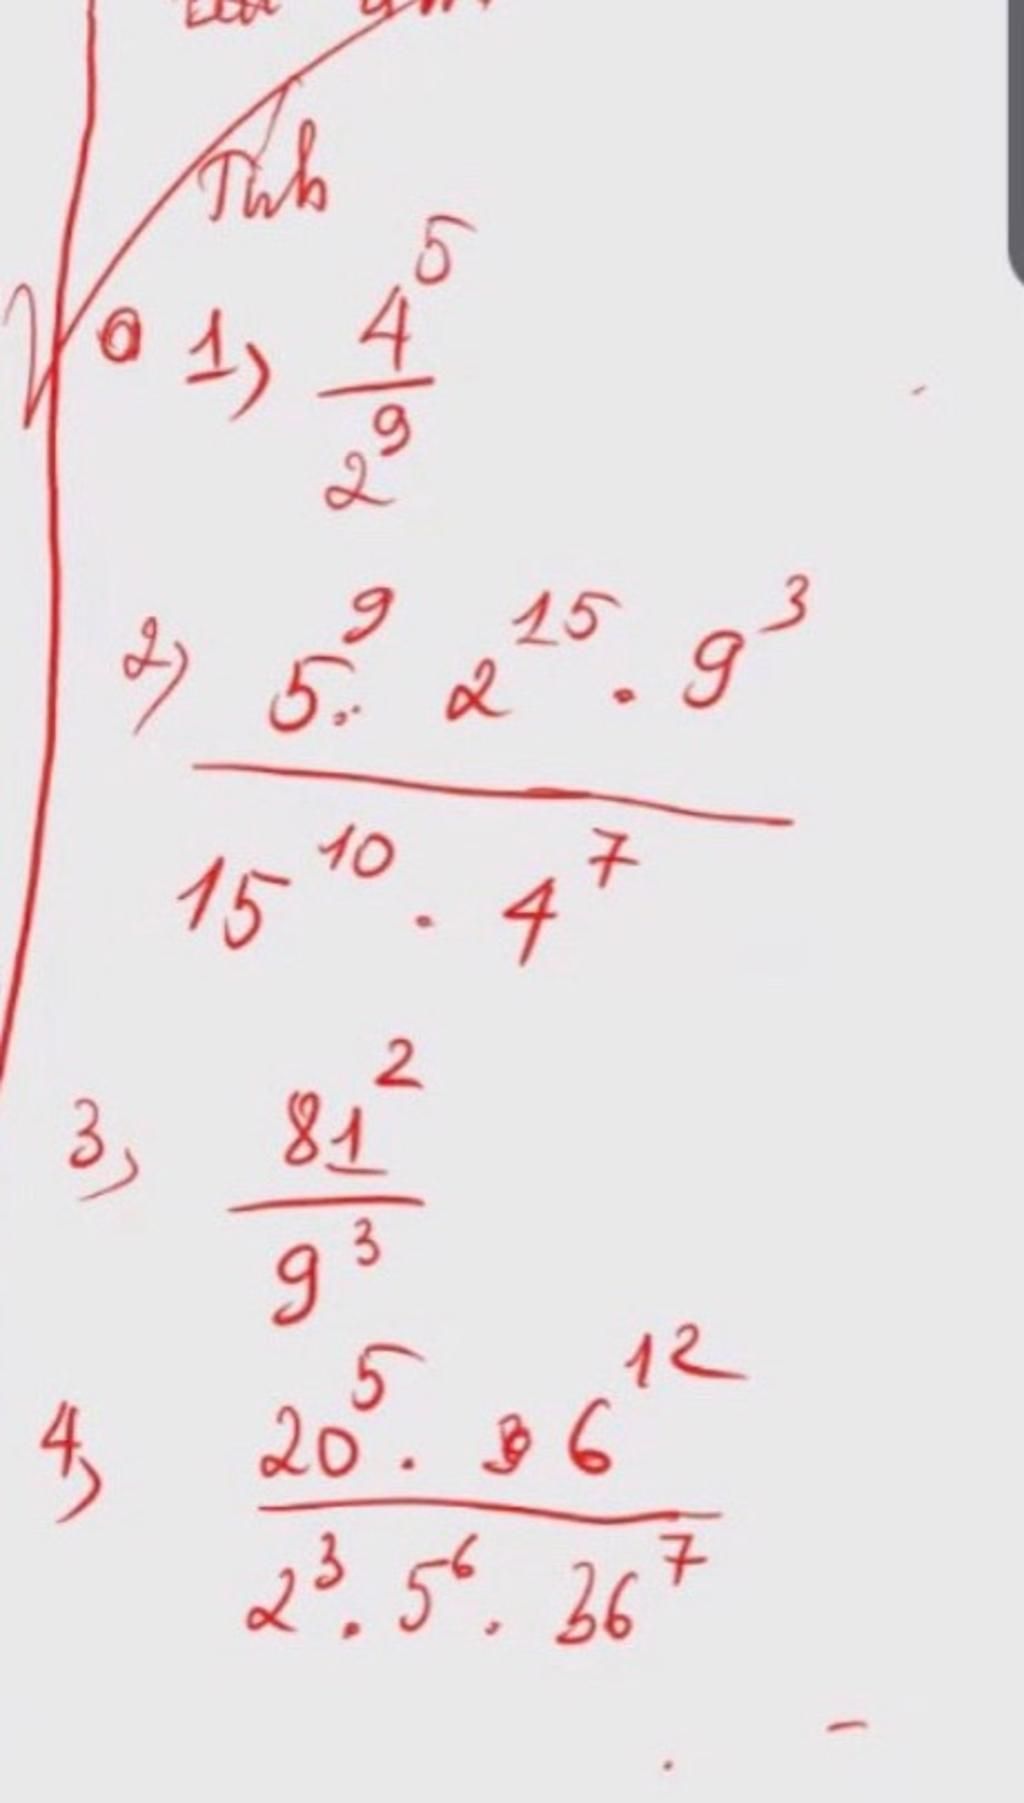 1) 4^5 / 2^9
2) 5^9 . 2^15 . 9^3 / 15^10 . 4^7
3) 81^2 / 9^3
4) 20^5 . 6^12 / 2^3 . 5^6 . 36^7